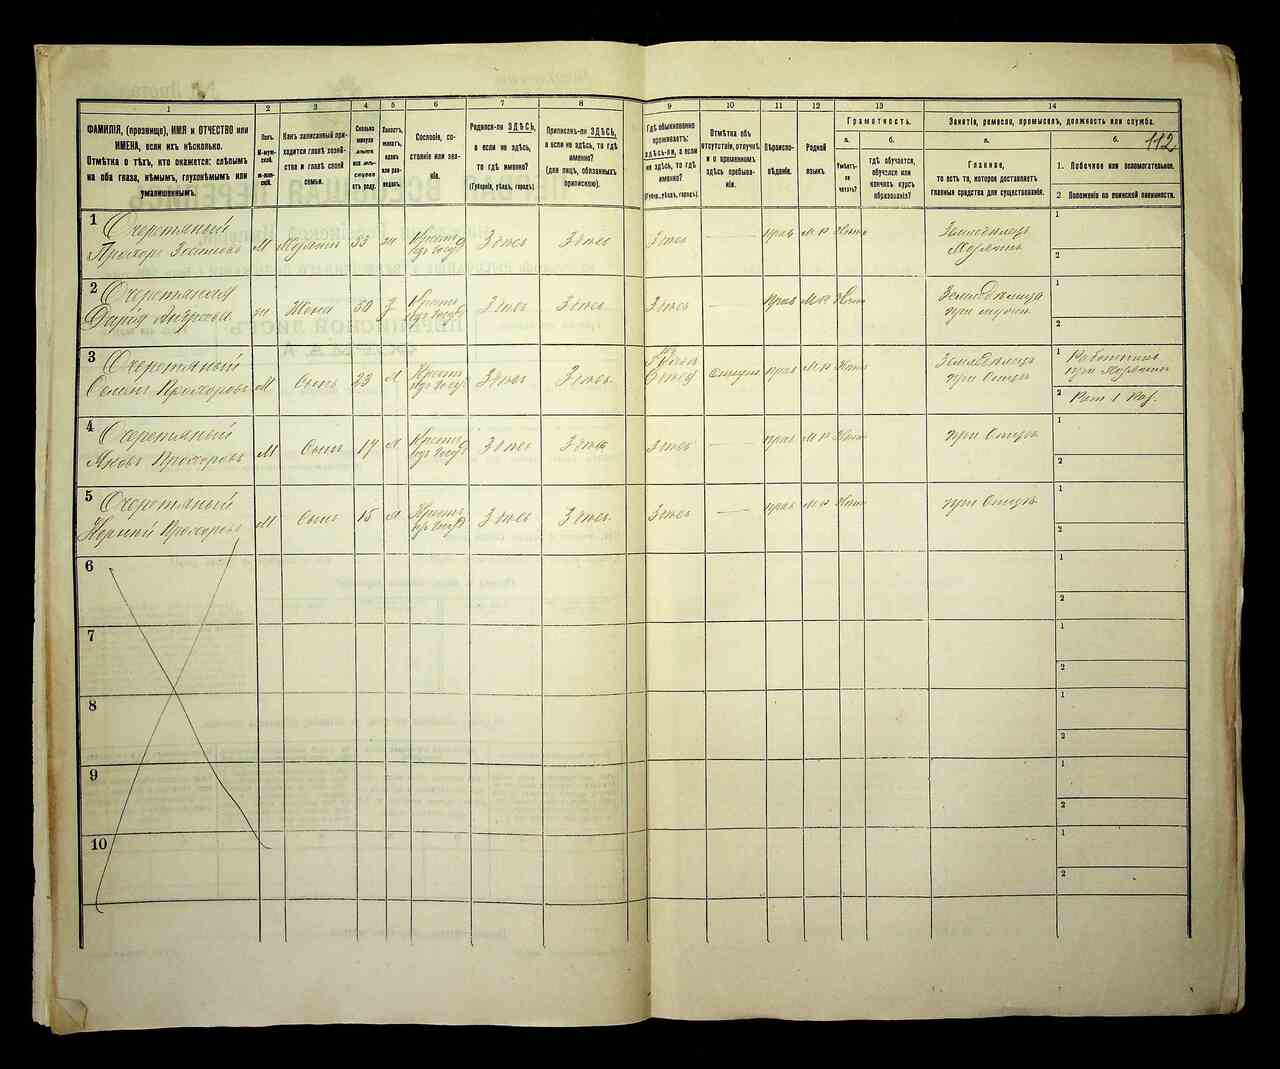 1 2 3 4 5 6 7 8 9 10 11 12 13 14
ФАМИЛІЯ, (прозвище), ИМЯ и ОТЧЕСТВО или
ИМЕНА, если ихъ нѣсколько.
Отмѣтка о тѣхъ, кто окажется: слѣпымъ
на оба глаза, нѣмымъ, глухонѣмымъ или
умалишеннымъ.
Полъ.
М-мужской.
Ж-женскій.
Какъ записанный при-
ходится главѣ хозяй-
ства и главѣ своей
семьи.
Сколько
минуло
лѣтъ
или мѣ-
сяцевъ
отъ роду.
Холостъ,
женатъ,
вдовъ
или раз-
веденъ.
Сословіе, со-
стояніе или зва-
ніе.
Родился-ли ЗДѢСЬ,
а если не здѣсь,
то гдѣ именно?
(Губернія, уѣздъ, городъ)
Приписанъ-ли ЗДѢСЬ,
а если не здѣсь, то гдѣ
именно?
(для лицъ, обязанныхъ
припискою).
Гдѣ обыкновенно
проживаетъ:
здѣсь-ли, а если
не здѣсь, то гдѣ
именно?
(Губерн., уѣздъ, городъ).
Отмѣтка объ
отсутствіи, отлучкѣ
и о временномъ
здѣсь пребыва-
ніи.
Вѣроиспо-
вѣданіе.
Родной
языкъ.
Грамотность.
а.
Умѣетъ-
ли
читать?
б.
гдѣ обучается,
обучался или
кончилъ курсъ
образованія?
Занятіе, ремесло, промыселъ, должность или служба.
а.
Главное,
то есть то, которое доставляетъ
главныя средства для существованія.
б.
112
1. Побочное или вспомогательное.
2 Положеніе по воинской повинности.
1 Очеретяный
Прохоръ М Хозяинъ 53 ж Крест. Здѣсь Здѣсь Здѣсь — прав М Р Нетъ Земледѣлецъ
Хозяинъ
1
2
2 Очеретяная
Дарья Андреева ж Жена 50 з Крест. Здѣсь Здѣсь Здѣсь — прав М Р Нет Земледѣлица
при мужѣ
1
2
3 Очеретяный
Прохоровъ М Сынъ 23 Х Крест. Здѣсь Здѣсь прав М Р Нет Земледѣлецъ
при Отцѣ
1 Работникъ
при Хозяинѣ
2 Рат 1 Раз.
4 Очеретяный
Яковъ Прохоровъ М Сынъ 17 Х Крест. Здѣсь Здѣсь Здѣсь — прав М Р Нет при Отцѣ
1
2
5 Очеретяный
Прохоровъ М Сынъ 15 Х Крест. Здѣсь Здѣсь Здѣсь — прав М Р Нет при Отцѣ
1
2
6 1
2
7 1
2
8 1
2
9 1
2
10 1
2